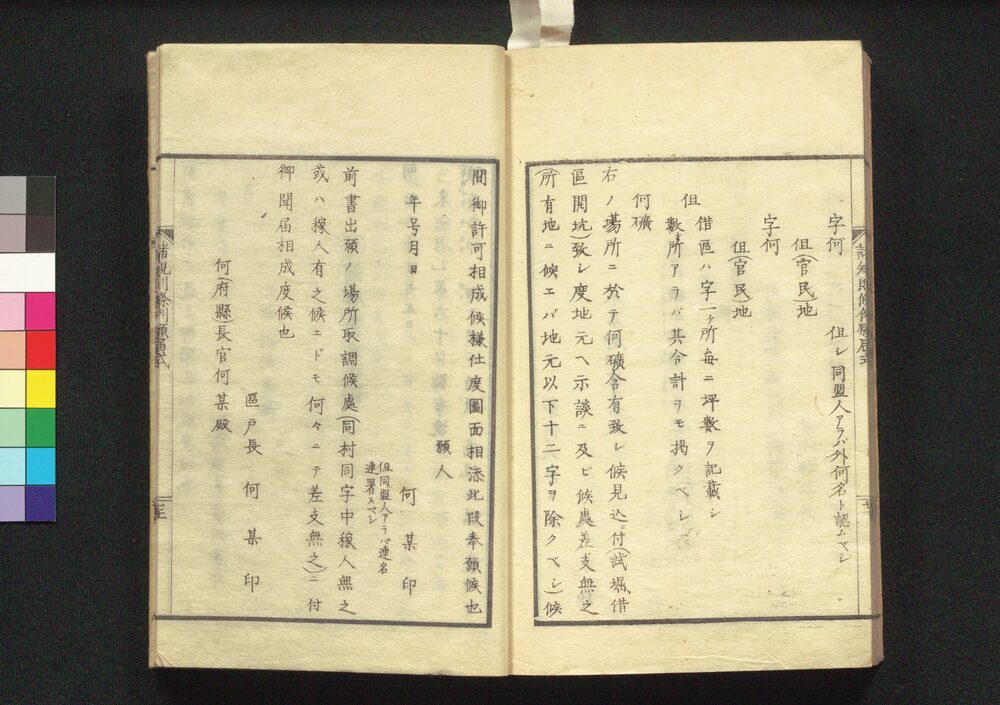 字何
但シ同盟人アラバ外何名ト認ムベシ
但(官民)地
字何
但(官民)地
借區ハ字一ヶ所毎ニ坪數ヲ記載シ
但
數ヶ所アラバ其合計ヲモ掲クベシ
何礦
右ノ場所ニ於テ何礦含有致シ候見込ニ付(試堀借
區開坑)致シ度地元ヘ示談ニ及ビ候處差支無之
(所有地ニ候エバ地元以下十二字ヲ除クベシ)候
間御許可相成候様仕度圖面相添此段奉願候也
願人
年号月日
何某印
但同盟人アラバ連名
連署スベシ
前書出願ノ場所取調候處(同村同字中稼人無之
或ハ稼人有之候エドモ何々ニテ差支無之)ニ付
御聞届相成度候也
區戸長 何某印
何(府縣)長官何某殿
諸規則條例願届式